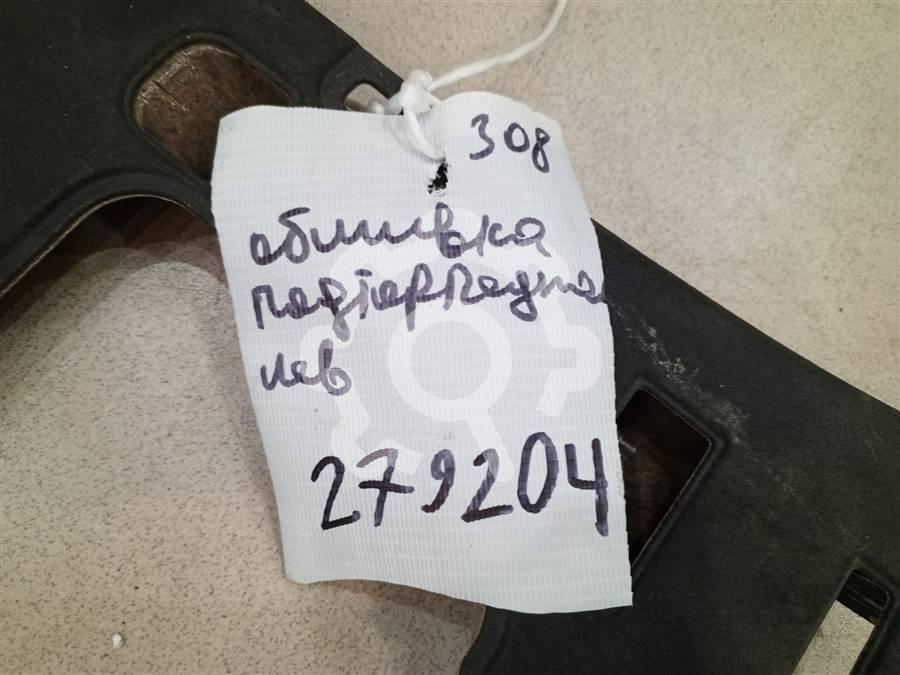 308
обшивка
подторпедная
лев
279204